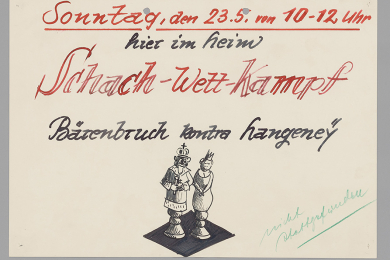 Sonntag, den 23.5. von 10-12 Uhr
hier im Heim
Schach-Wett-Kampf
Bärenbruch kontra Hangeney
nicht
stattgefunden